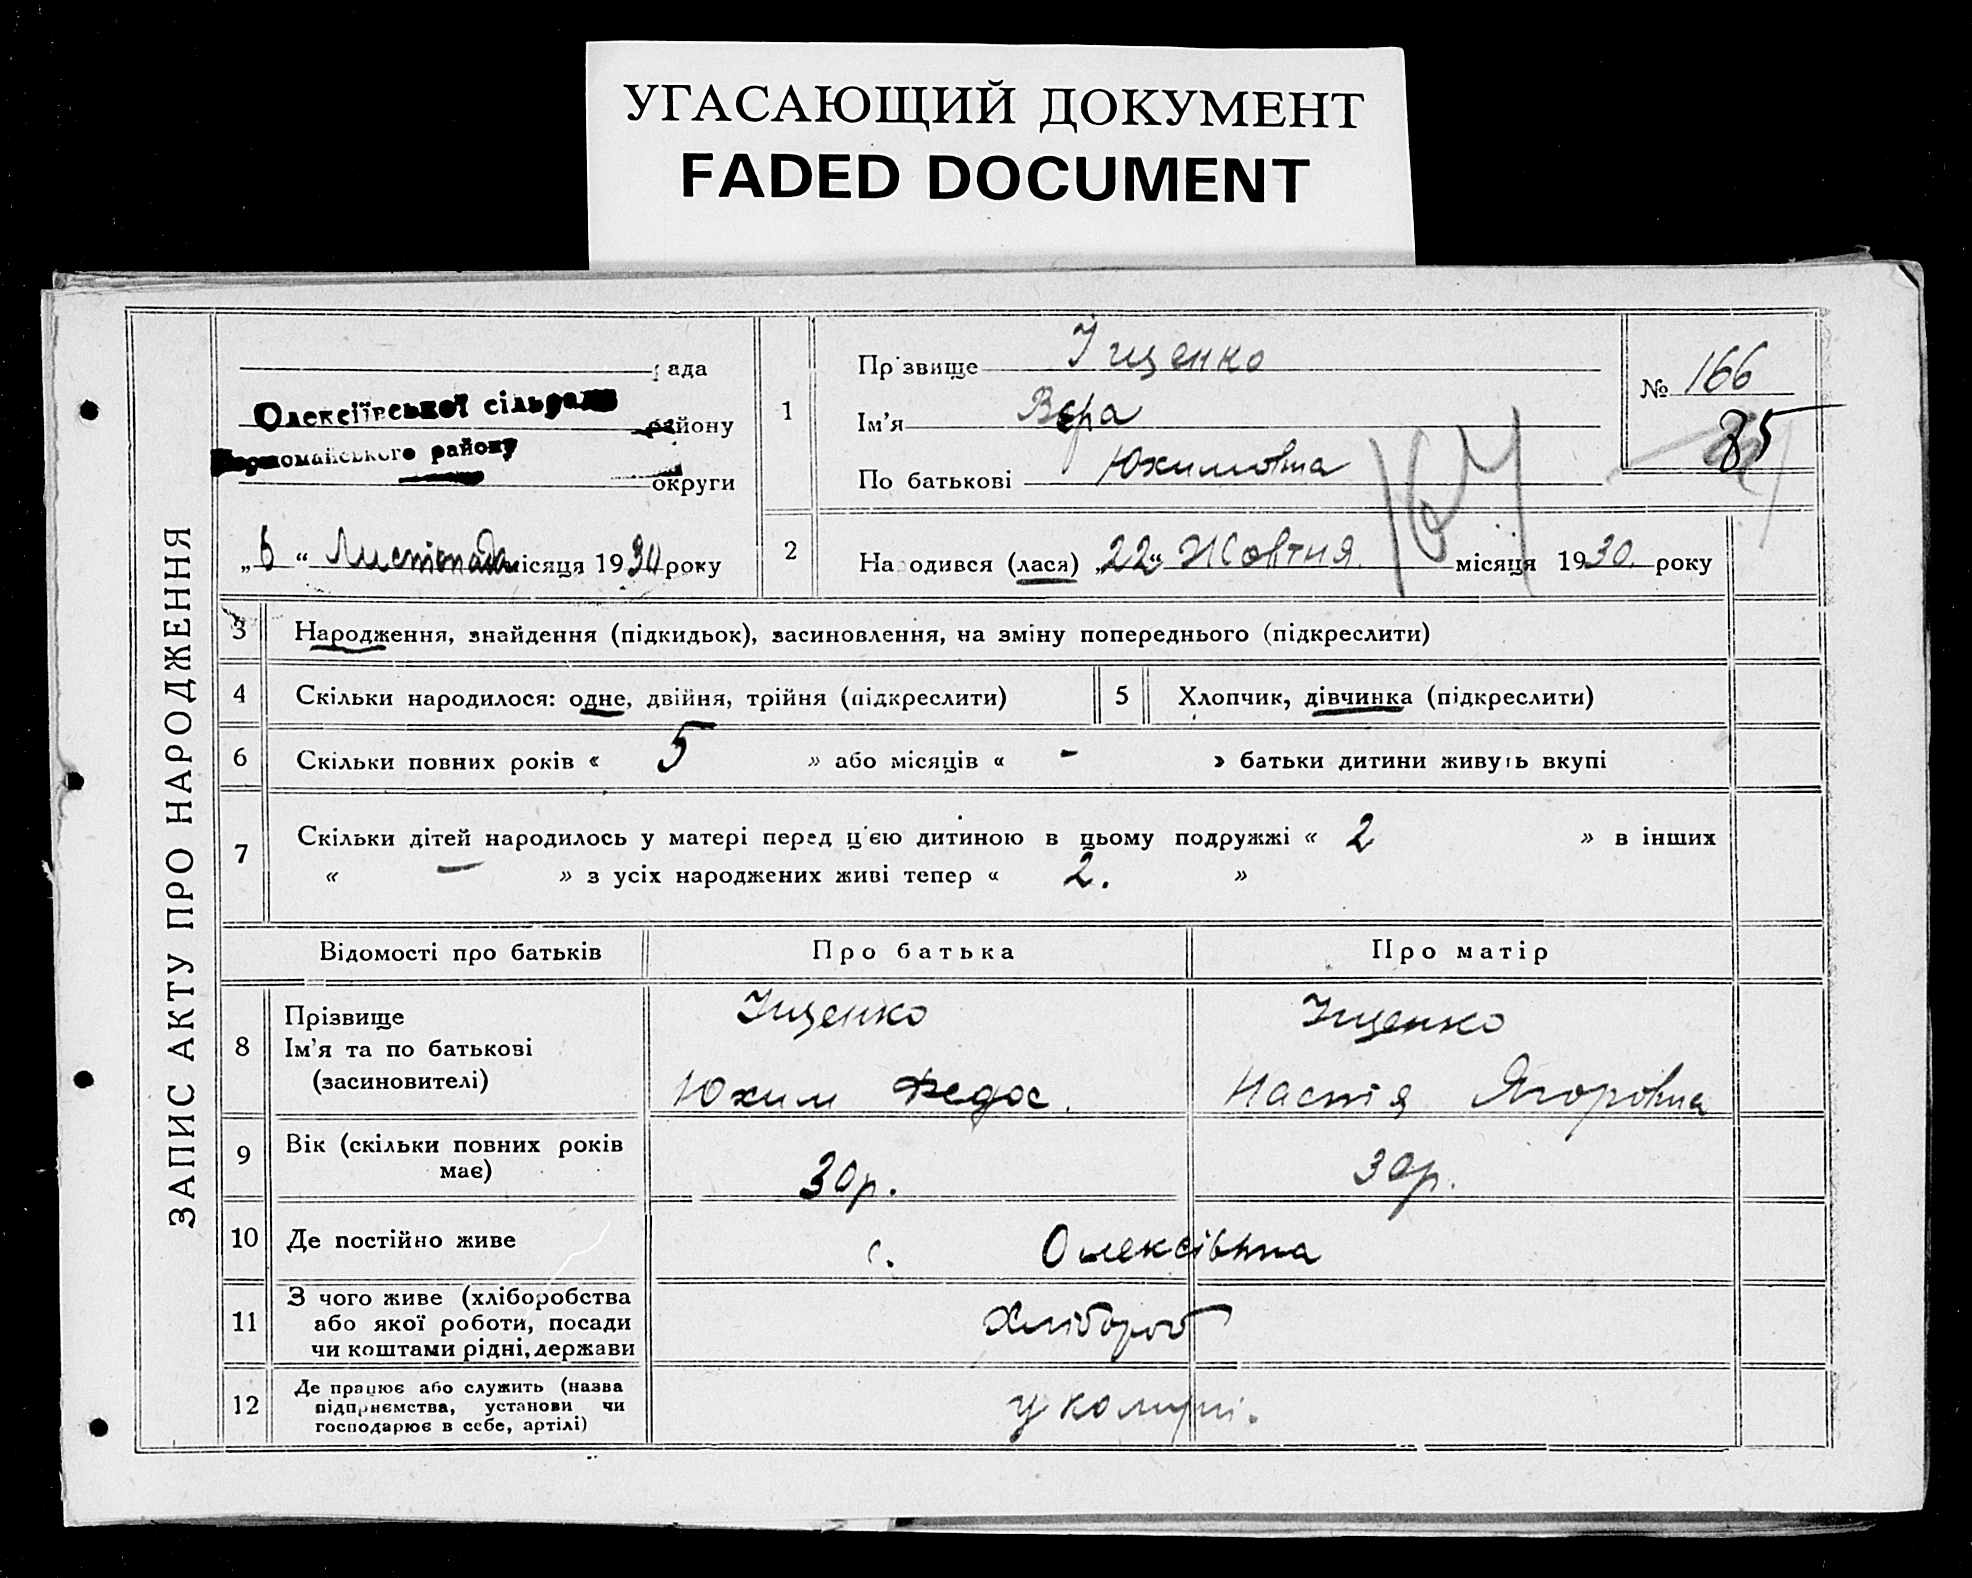 УГАСАЮЩИЙ ДОКУМЕНТ
FADED DOCUMENT
ЗАПИС АКТУ ПРО НАРОДЖЕННЯ
рада
Олексіївської сільради
району
Первомайського району
округи
„6“ Листопада місяця 1930 року
1
Прізвище Іщенко
Ім'я Вера
По батькові Юхимовна
№ 166
85
167
2
Народився (лася) „22“ Жовтня місяця 1930. року
3 Народження, знайдення (підкидьок), засиновлення, на зміну попереднього (підкреслити)
4 Скільки народилося: одне, двійня, трійня (підкреслити) 5 Хлопчик, дівчинка (підкреслити)
6 Скільки повних років « 5 » або місяців « - » батьки дитини живуть вкупі
7 Скільки дітей народилось у матері перед ц'єю дитиною в цьому подружжі « 2 » в інших
« — » з усіх народжених живі тепер « 2. »
Відомості про батьків Про батька Про матір
8 Прізвище Іщенко Іщенко
Ім'я та по батькові
(засиновителі) Юхим Федос. Настя Ягоровна
9 Вік (скільки повних років
має) 30р. 30р.
10 Де постійно живе с. Олексівка
11 З чого живе (хліборобства
або якої роботи, посади
чи коштами рідні, держави Хлібороб
12 Де працює або служить (назва
підприємства, установи чи
господарює в себе, артілі) у